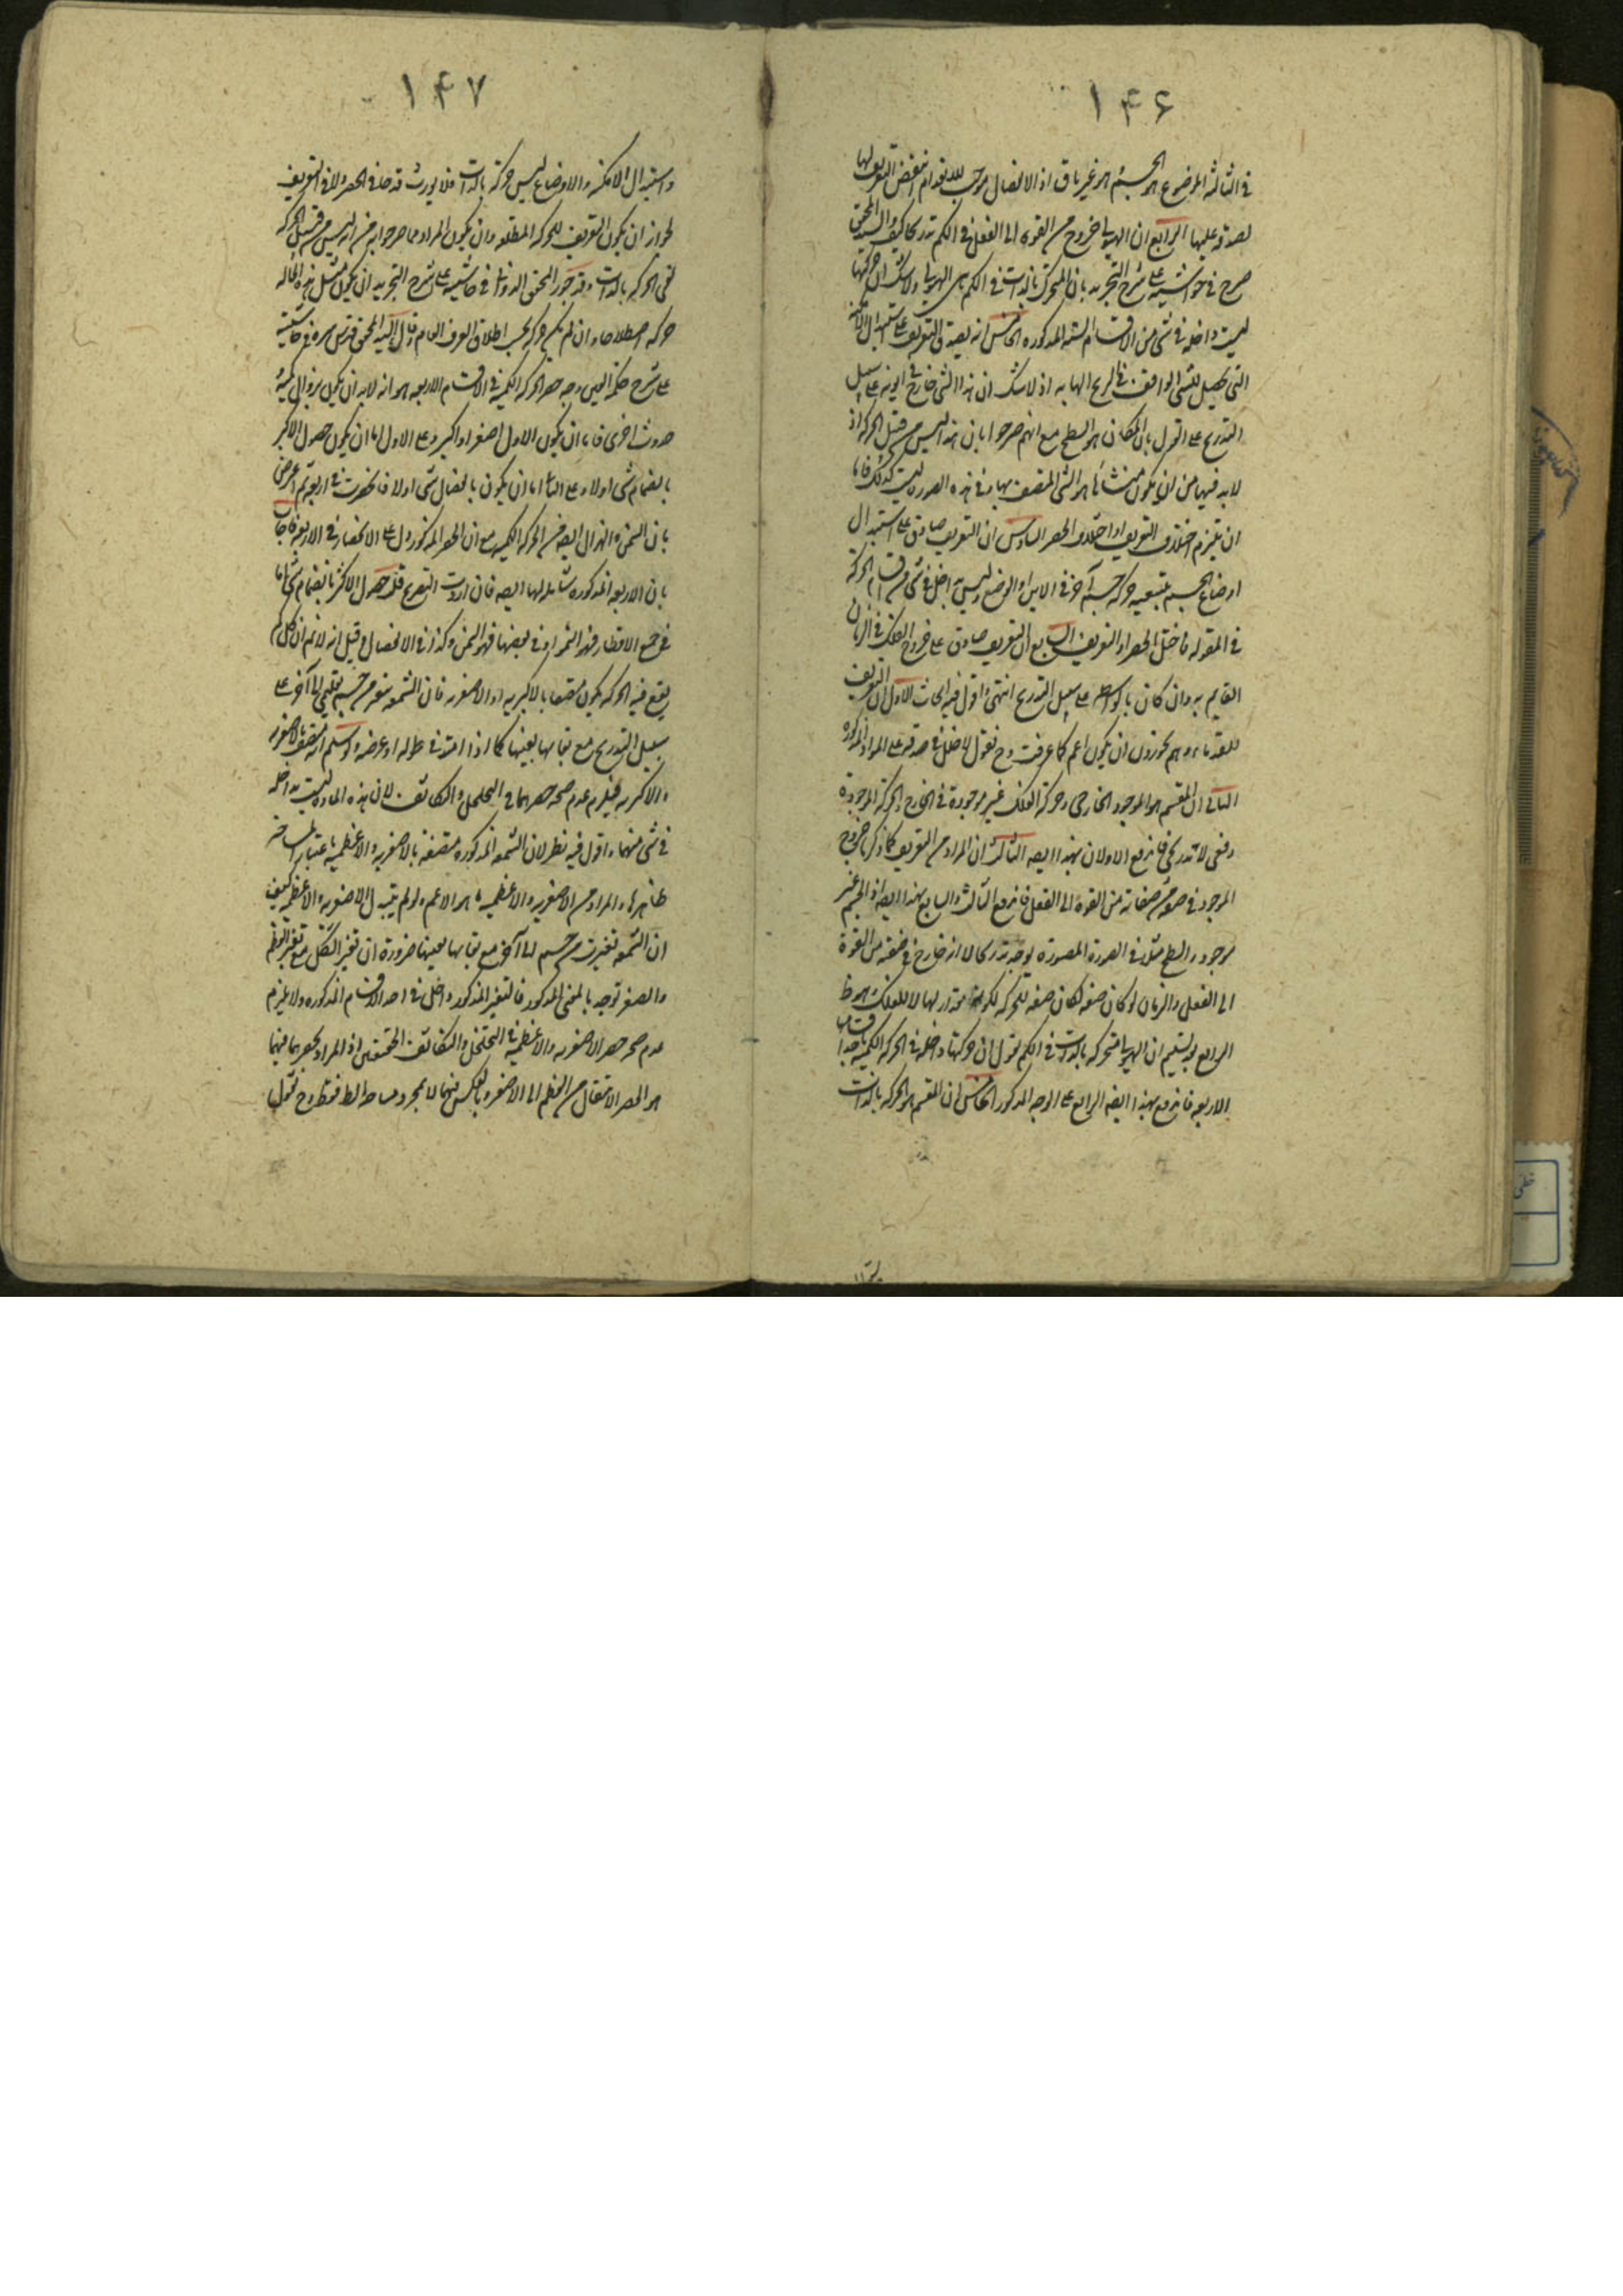 ١۴۶
في الثالثة الموضوع هو الجسم هو غير باق اذ الانفصال موجب للانعدام انتقض التعريف بها
لصدقه عليها الرابع ان الهيولى خروج من القوة الى الفعل في الكم تدريجا كيف والسيد المحقق
صرح في حواشيه على شرح التجريد بان المتحرك بالذات في الكم هي الهيولى ولا شك ان حركتها
ليست داخلة في شئ من الاقسام الستة المذكورة الخامس انه يصدق التعريف على استبدال الامكنة
التي تحصل للشئ الواقف في الريح الهابة اذ لا شك ان هذا الشئ خارج في اينه على سبيل
التدريج على القول بان المكان هو السطح مع انهم صرحوا بان هذا ليس من قبيل الحركة اذ
لا بد فيها من ان يكون منشأها هو الشئ المتصف بها وفي هذه الصورة ليست كذلك فاما
ان يلتزم اختلال التعريف او اختلال الحصر السادس ان التعريف صادق على استبدال
اوضاع الجسم بتبعية حركة جسم آخر في الاين او الوضع وليس بداخل في شئ من اقسام الحركة
في المقولة فاختل الحصر او التعريف السابع ان التعريف صادق على خروج الفلك في الزمان
القايم به وان كان بالواسطة على سبيل التدريج انتهى اقول فيه ابحاث الاول ان التعريف
للقدماء وهم يجوزون ان يكون اعم كما عرفت وح نقول لا خلل في صدقه على المواد المذكورة
الثاني ان المقسم هو الموجود الخارجي وحركة الفلك غير موجودة في الخارج والحركة الموجودة
دفعي لا تدريجي فاندفع الاولان بهذا ايضا الثالث ان المراد من التعريف كما ذكر خروج
الموجود في صفة من صفاته من القوة الى الفعل فاندفع الثالث والسابع بهذا ايضا اذ الجسم غير
موجود والسطح مثلا في الصورة المصورة يوجد تدريجا لا انه خارج في صفته من القوة
الى الفعل والزمان لو كان صفة لكان صفة للحركة لكونه مقدارا لها لا للفلك هو ظ
الرابع بتسليم ان الهيولى متحركة بالذات في الكم نقول ان حركتها داخلة في الحركة الكمية باقسامها
الاربعة فاندفع بهذا ايضا الرابع على الوجه المذكور الخامس ان المقسم هو الحركة بالذات
١۴٧
واستبدال الامكنة والاوضاع ليس حركة بالذات فلا يورث قدحا في الحصر ولا في التعريف
لجواز ان يكون التعريف للحركة المطلقة وان يكون المراد مما صرحوا به من انه ليس من قبيل الحركة
نفي الحركة بالذات وقد جوز المحقق الدواني في حاشيته على شرح التجريد ان يكون مثل هذه الحالة
حركة اصطلاحا وان لم يكن حركة بحسب اطلاق العرف العام وقال السيد المحقق قدس سره في حاشيته
على شرح حكمة العين وجه حصر الحركة الكمية في الاقسام الاربعة هو انه لا بد ان يكون بزوال كمية
وحدوث اخرى فاما ان يكون الاول اصغر او اكبر وعلى الاول اما ان يكون حصول الاكبر
بانضمام شئ اولا وعلى الثاني اما ان يكون بانفصال شئ اولا فانحصرت في اربعة ثم اعترض
بان السمن والهزال ايضا من الحركة الكمية مع ان الحصر المذكور دل على الانحصار في الاربعة فاجاب
بان الاربعة المذكورة شاملة لها ايضا فان اردت التصريح قلت حصول الاكثر بانضمام شئ اما
في جميع الاقطار فهو النمو او في بعضها فهو السمن وكذا في الانفصال وقيل انه لا نم ان كل ما
يقع فيه الحركة يكون متصفا بالاكبرية او الاصغرية فان الشمعة تتغير من جسم تعليمي الى آخر على
سبيل التدريج مع بقائها بعينها كما اذا امتد في طوله او عرضه ولو سلم انه متصف بالاصغرية
والاكبرية فيلزم عدم صحة حصرهما في التخلخل والتكاثف لان هذه المادة ليست بداخلة
في شئ منهما واقول فيه نظر لان الشمعة المذكورة متصفة بالاصغرية والاعظمية باعتبار المساحة
ظاهرها والمراد من الاصغرية والاعظمية ما هو الاعم ولو لم يتبدل الاصغرية والاعظمية كيف
ان الشمعة تغيرت من جسم الى آخر مع بقائها بعينها ضرورة ان تغير الشكل مع تغير العظم
والصغر توجد بالمعنى المذكور فالتغير المذكور داخل في احد الاقسام المذكورة ولا يلزم
عدم صحة حصر الاصغرية والاعظمية في التخلخل والتكاثف الحقيقيين اذ المراد بحصرهما فيهما
هو الحصر الانتقال من العظم الى الاصغر وبالعكس فيهما لا بمجرد مساحة السطح فقط وح نقول